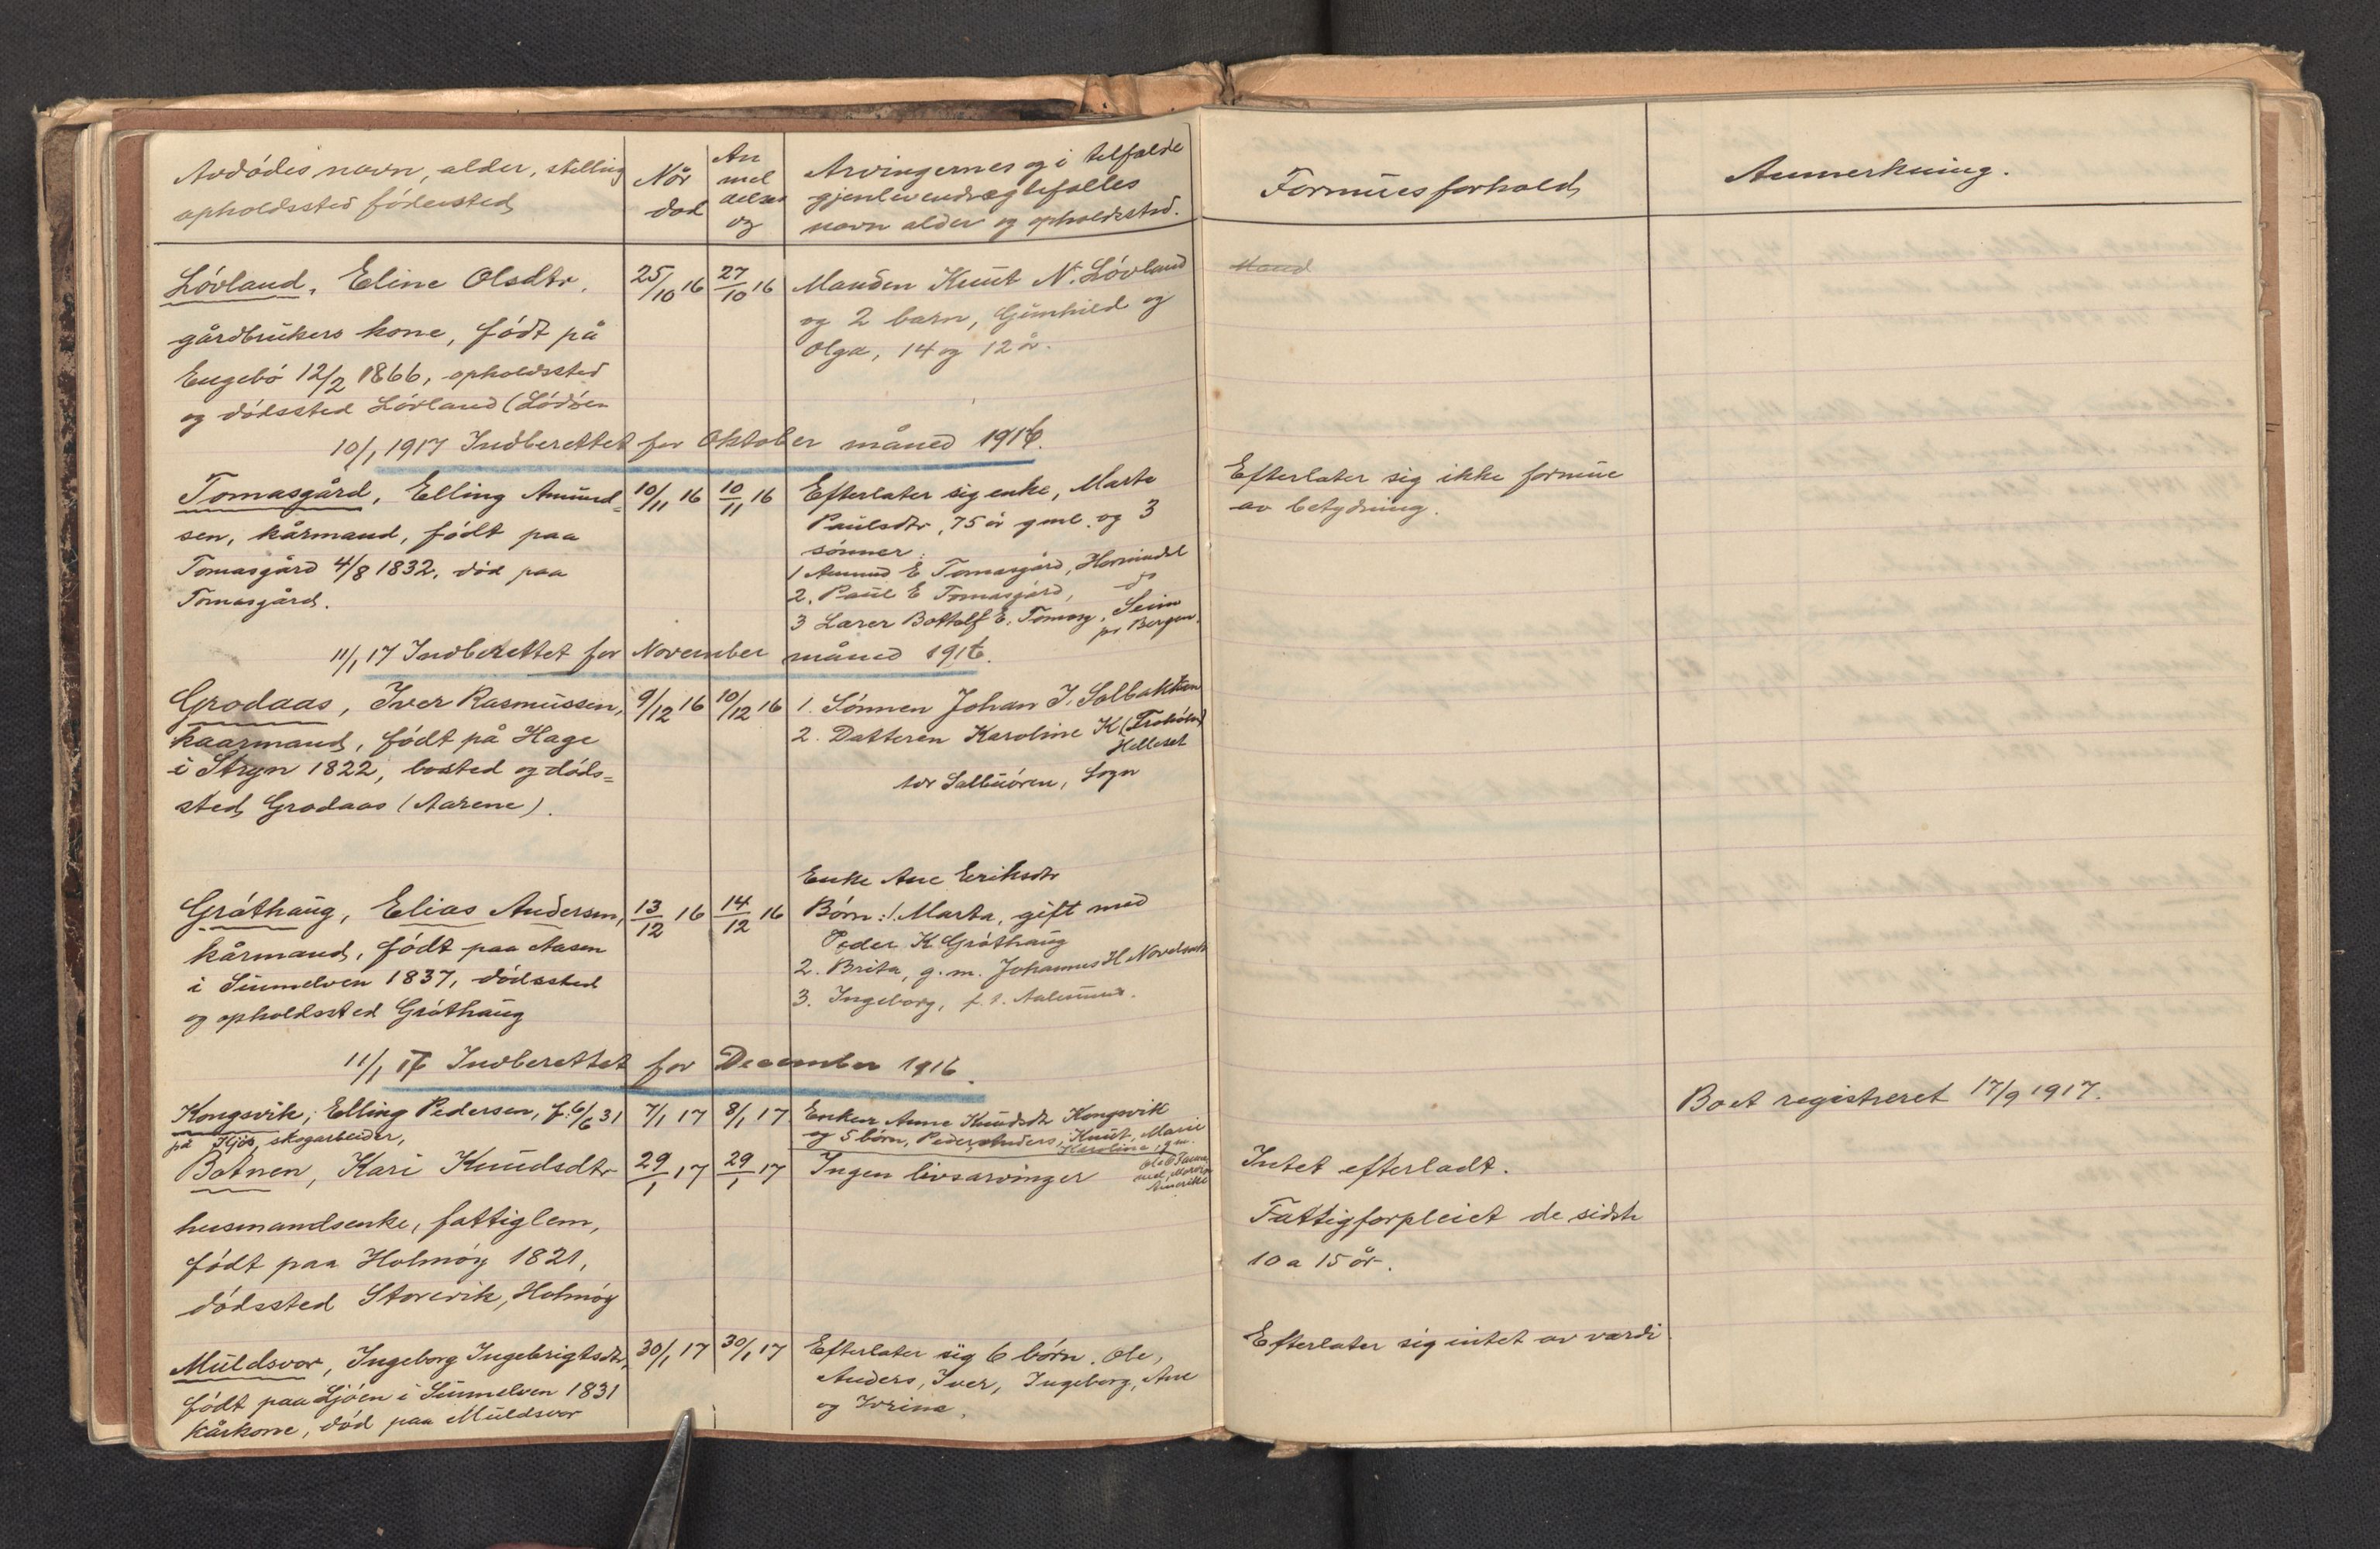 Avdødes navn, alder, stilling
opholdssted fødested
Når
død
An
mel
delses
og
Arvingernes og i tilfælde
gjenlevende ægtefælles
navn alder og opholdssted.
Formuesforhold
Anmerkning.
Lövland, Eline Olsdtr.
gårdbrukers kone, født på
Engebö 12/2 1866, opholdssted
og dödssted Lövland (Lödöen
25/10 16
27/10 16
Manden Knut N. Lövland
og 2 barn, Gunhild og
Olga, 14 og 12 år.
Mand
10/1 1917 Indberettet for Oktober måned 1916.
Tomasgård, Elling Amund=
sen, kårmand, født paa
Tomasgård 4/8 1832, död paa
Tomasgård.
10/11 16
10/11 16
Efterlater sig enke, Marte
Paulsdtr, 75 år gml. og 3
sönner.
1 Amund E Tomasgård, Hornindal
2. Paul E Tomasgård, do
3 Lærer Bottolf E. Tomasg. Seim
pr Bergen.
Efterlater sig ikke formue
av betydning.
11/1 17 Indberettet for November måned 1916.
Grodaas, Iver Rasmussen,
kaarmand, født på Hage
i Stryn 1822, bosted og döds=
sted, Grodaas (Aarene).
9/12 16
10/12 16
1. Sönnen Johan I. Solbakken
2. Datteren Karoline K
Helleset
Sogn
Gröthaug, Elias Andersen,
kårmand, født paa Aasen
i Sunnelven 1837, dödssted
og opholdssted Gröthaug
13/12 16
14/12 16
Enke Ane Eriksdtr
Börn: 1. Marta, gift med
Peder K. Gröthaug
2. Brita, g.m. Johannes H
3. Ingeborg, f. t. Aalesund.
11/1 17 Indberettet for December 1916.
Kongsvik, Elling Pedersen, f. 6/6 31
på Kjös, skogarbeider,
7/1 17
8/1 17
Enken Anne Knudsdtr Kongsvik
og 5 börn, Peder, Anders, Knut, Marie
Karolina, g.m.
Amerika
Boet registreret 17/9 1917.
Botnen, Kari Knudsdtr
husmandsenke, fattiglem,
født paa Holmöy 1821,
dödssted Storevik, Holmöy
29/1 17
29/1 17
Ingen livsarvinger
Intet efterladt.
Fattigforpleiet de sidste
10 a 15 år.
Muldsvor, Ingeborg Ingebrigtsdtr,
født paa Ljöen i Sunnelven 1831
kårkone, död paa Muldsvor
30/1 17
30/1 17
Efterlater sig 6 börn. Ole,
Anders, Iver, Ingeborg, Ane
og Ivrine.
Efterlater sig intet av værdi